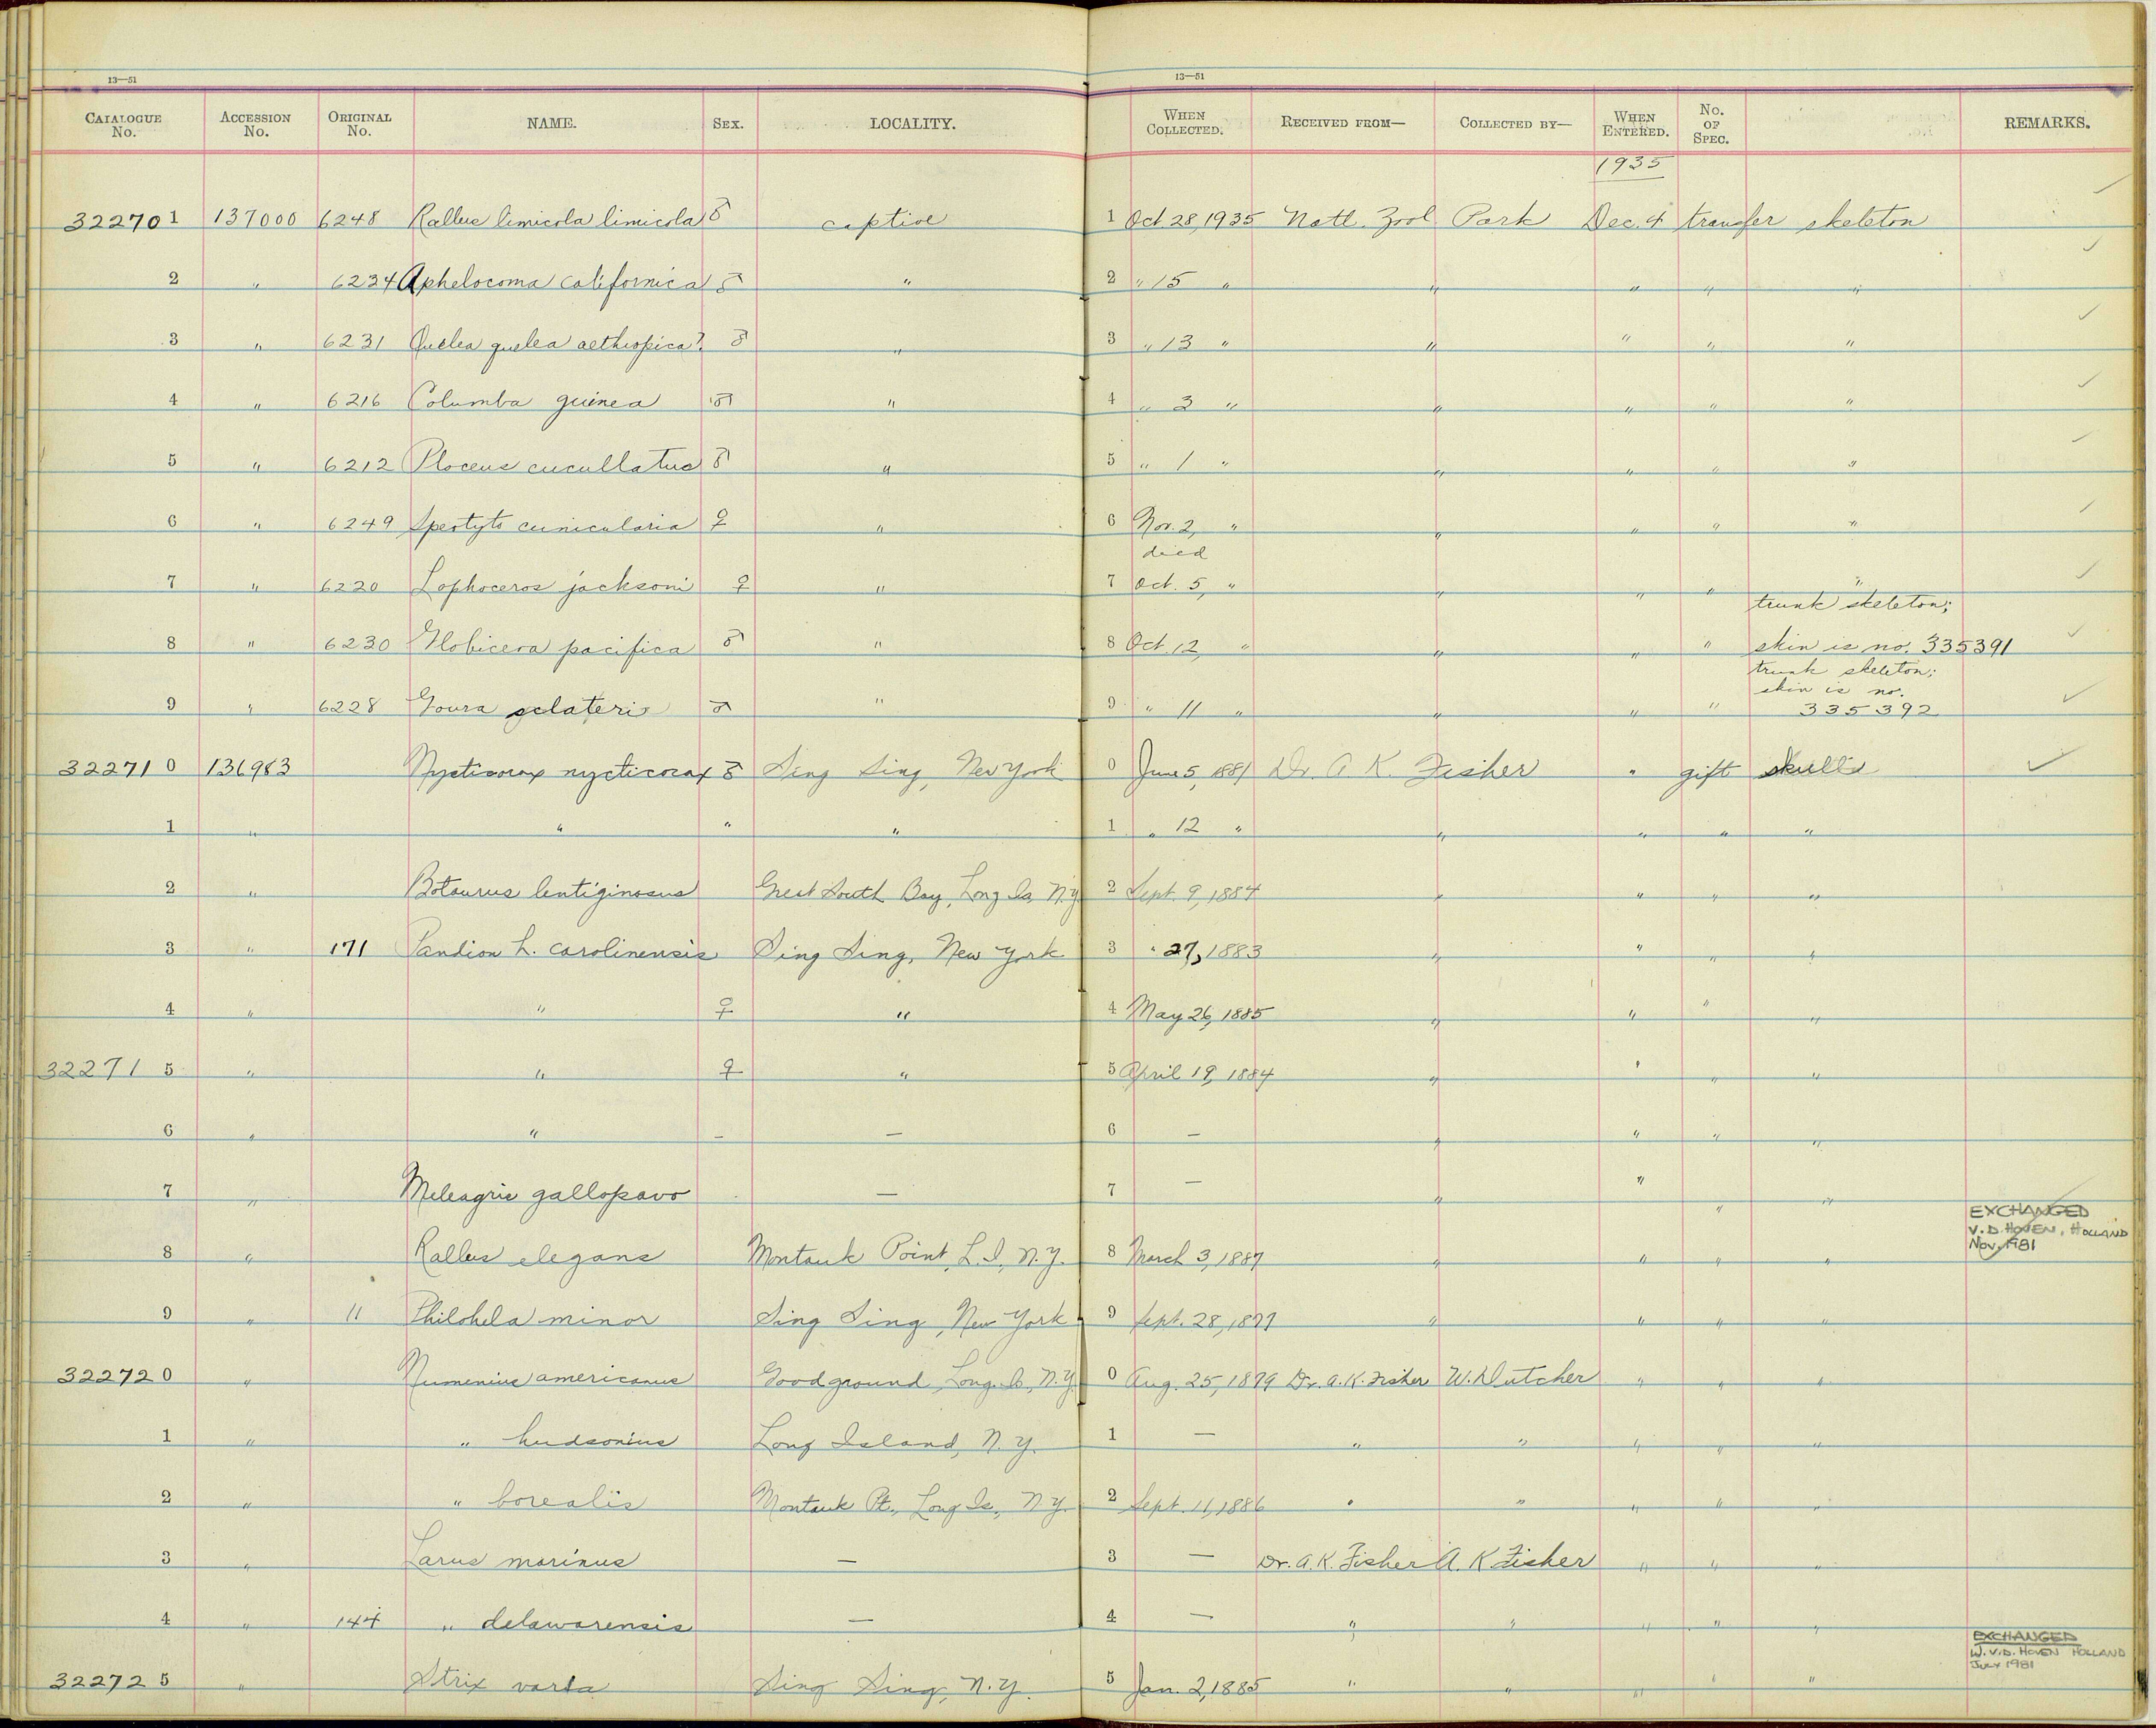 13—51 13—51
CATALOGUE No. ACCESSION No. ORIGINAL No. NAME. SEX. LOCALITY. WHEN COLLECTED. RECEIVED FROM— COLLECTED BY— WHEN ENTERED. No. OF SPEC. REMARKS.
1935
322701 137000 6248 Rallus limicola limicola ♂ captive 1 Oct. 28, 1935 Natl. Zool Park Dec. 4 transfer skeleton ✓
2 " 6234 Aphelocoma californica ♂ " 2 " 15 " " " " " ✓
3 " 6231 Quelea quelea aethiopica? ♂ " 3 " 13 " " " " " ✓
4 " 6216 Columba guinea ♂ " 4 " 3 " " " " " ✓
5 " 6212 Ploceus cucullatus ♂ " 5 " 1 " " " " " ✓
6 " 6249 Speotyto cunicularia ♀ " 6 Nov. 2, " " " " " ✓
died
7 " 6220 Lophoceros jacksoni ♀ " 7 Oct. 5, " " " " " ✓
trunk skeleton;
8 " 6230 Globicera pacifica ♂ " 8 Oct. 12, " " " " skin is no. 335391 ✓
trunk skeleton;
skin is no.
9 " 6228 Goura sclateri ♂ " 9 " 11 " " " " 335392 ✓
322710 136983 Nycticorax nycticorax ♂ Sing Sing, New York 0 June 5, 1881 Dr. A. K. Fisher " gift skulls ✓
1 " " " " 1 " 12 " " " " "
2 " Botaurus lentiginosus Great South Bay, Long Is, N.Y. 2 Sept. 9, 1884 " " " "
3 " 171 Pandion h. carolinensis Sing Sing, New York 3 " 27, 1883 " " " "
4 " " ♀ " 4 May 26, 1885 " " " "
322715 " " ♀ " 5 April 19, 1884 " " " "
6 " " – — 6 — " " " "
7 " Meleagris gallopavo — 7 — " " " "
EXCHANGED
V.D. HOVEN, HOLLAND
Nov. 1981
8 " Rallus elegans Montauk Point, L.I., N.Y. 8 March 3, 1887 " " " "
9 " 11 Philohela minor Sing Sing, New York 9 Sept. 28, 1877 " " " "
322720 " Numenius americanus Good ground, Long Is., N.Y. 0 Aug. 25, 1879 Dr. A.K. Fisher W. Dutcher " " "
1 " " hudsonius Long Island, N.Y. 1 — " " " " "
2 " " borealis Montauk Pt., Long Is., N.Y. 2 Sept. 11, 1886 " " " " "
3 " Larus marinus — 3 — Dr. A.K. Fisher A. K Fisher " " "
4 " 144 " delawarensis — 4 — " " " " "
EXCHANGED
W.V.D. HOVEN HOLLAND
JULY 1981
322725 " Strix varia Sing Sing, N.Y. 5 Jan. 2, 1885 " " " " "